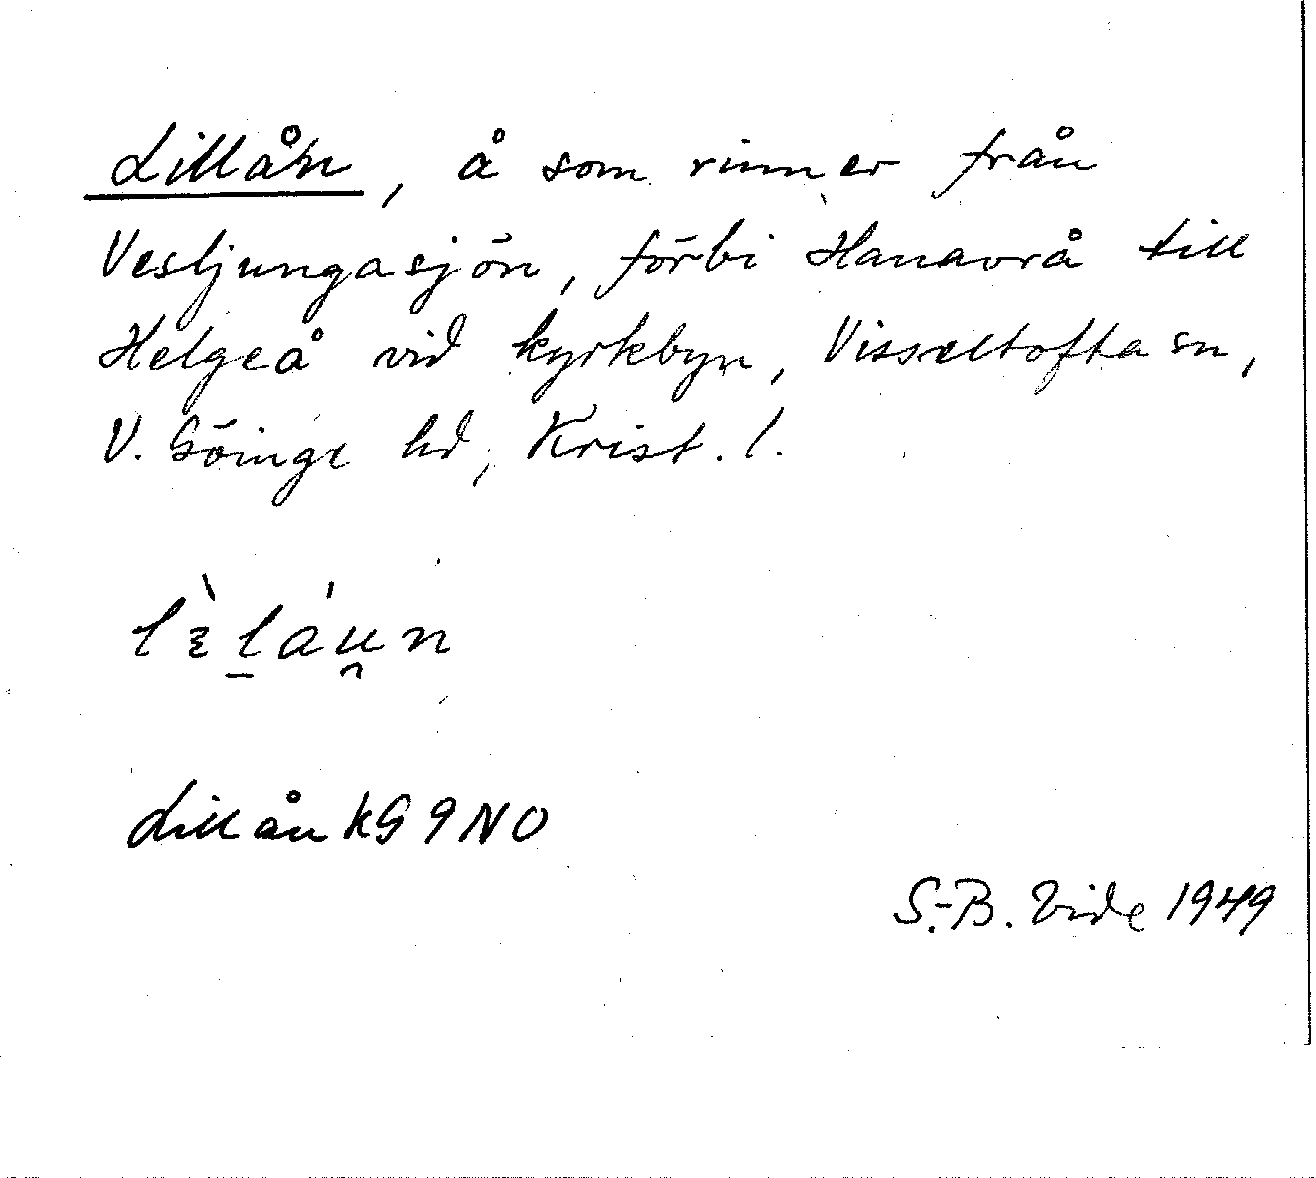 Lillån, å som rinner från
Vesljungasjön, förbi Hanavrå till
Helgeå vid kyrkbyn, Visseltofta sn,
V. Göinge hd, Krist. l.
lὲl̠áu̯n
Lillån kG 9 NO
S.-B. Vide 1949